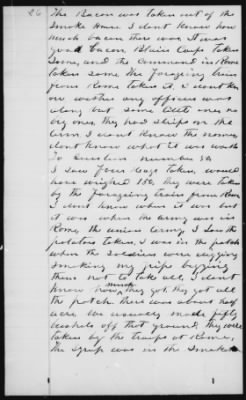 26 The Bacon was taken out of the
Smoke House I dont know how
much bacon there was It was
good bacon Blairs Corps taken
Some, and the Command in Rome
taken some the foraging train
from Rome taken it, I dont kn
ow wether any officers was
along but some little one no
big ones they had straps on the
arm I dont know the names
dont know what it was worth
To question number 50
I saw four Hogs taken, would
have weighed 150, they were taken
by the foraging train from Rome
I dont know when it was but
it was when the army was in
Rome, the union army, I saw the
potatoes taken, I was in the patch
when the soldiers were digging
smoking my pipe begging
them not to take all, I dont
know how much they got, they got all
the patch there was about half
acre We usually made fifty
bushels off that ground they were
taken by the troops at Rome,
the was in the Smoke